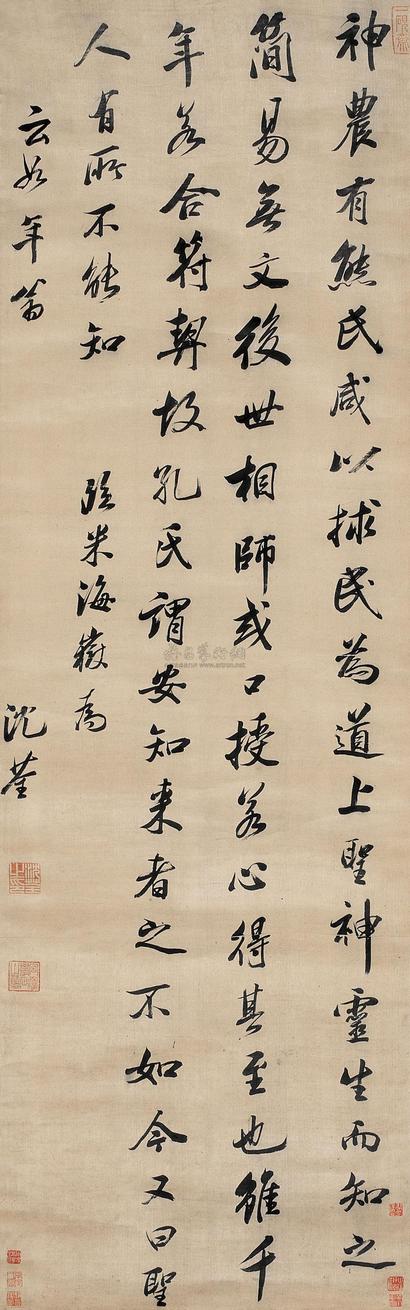 神農有熊氏咸以捄民為道上聖神靈生而知之
簡易無文後世相師或口授若心得其至也雖千
年若合符契故孔氏謂安知来者之不如今又曰聖
人有所不能知
臨米海嶽為
云如年翁
沈荃